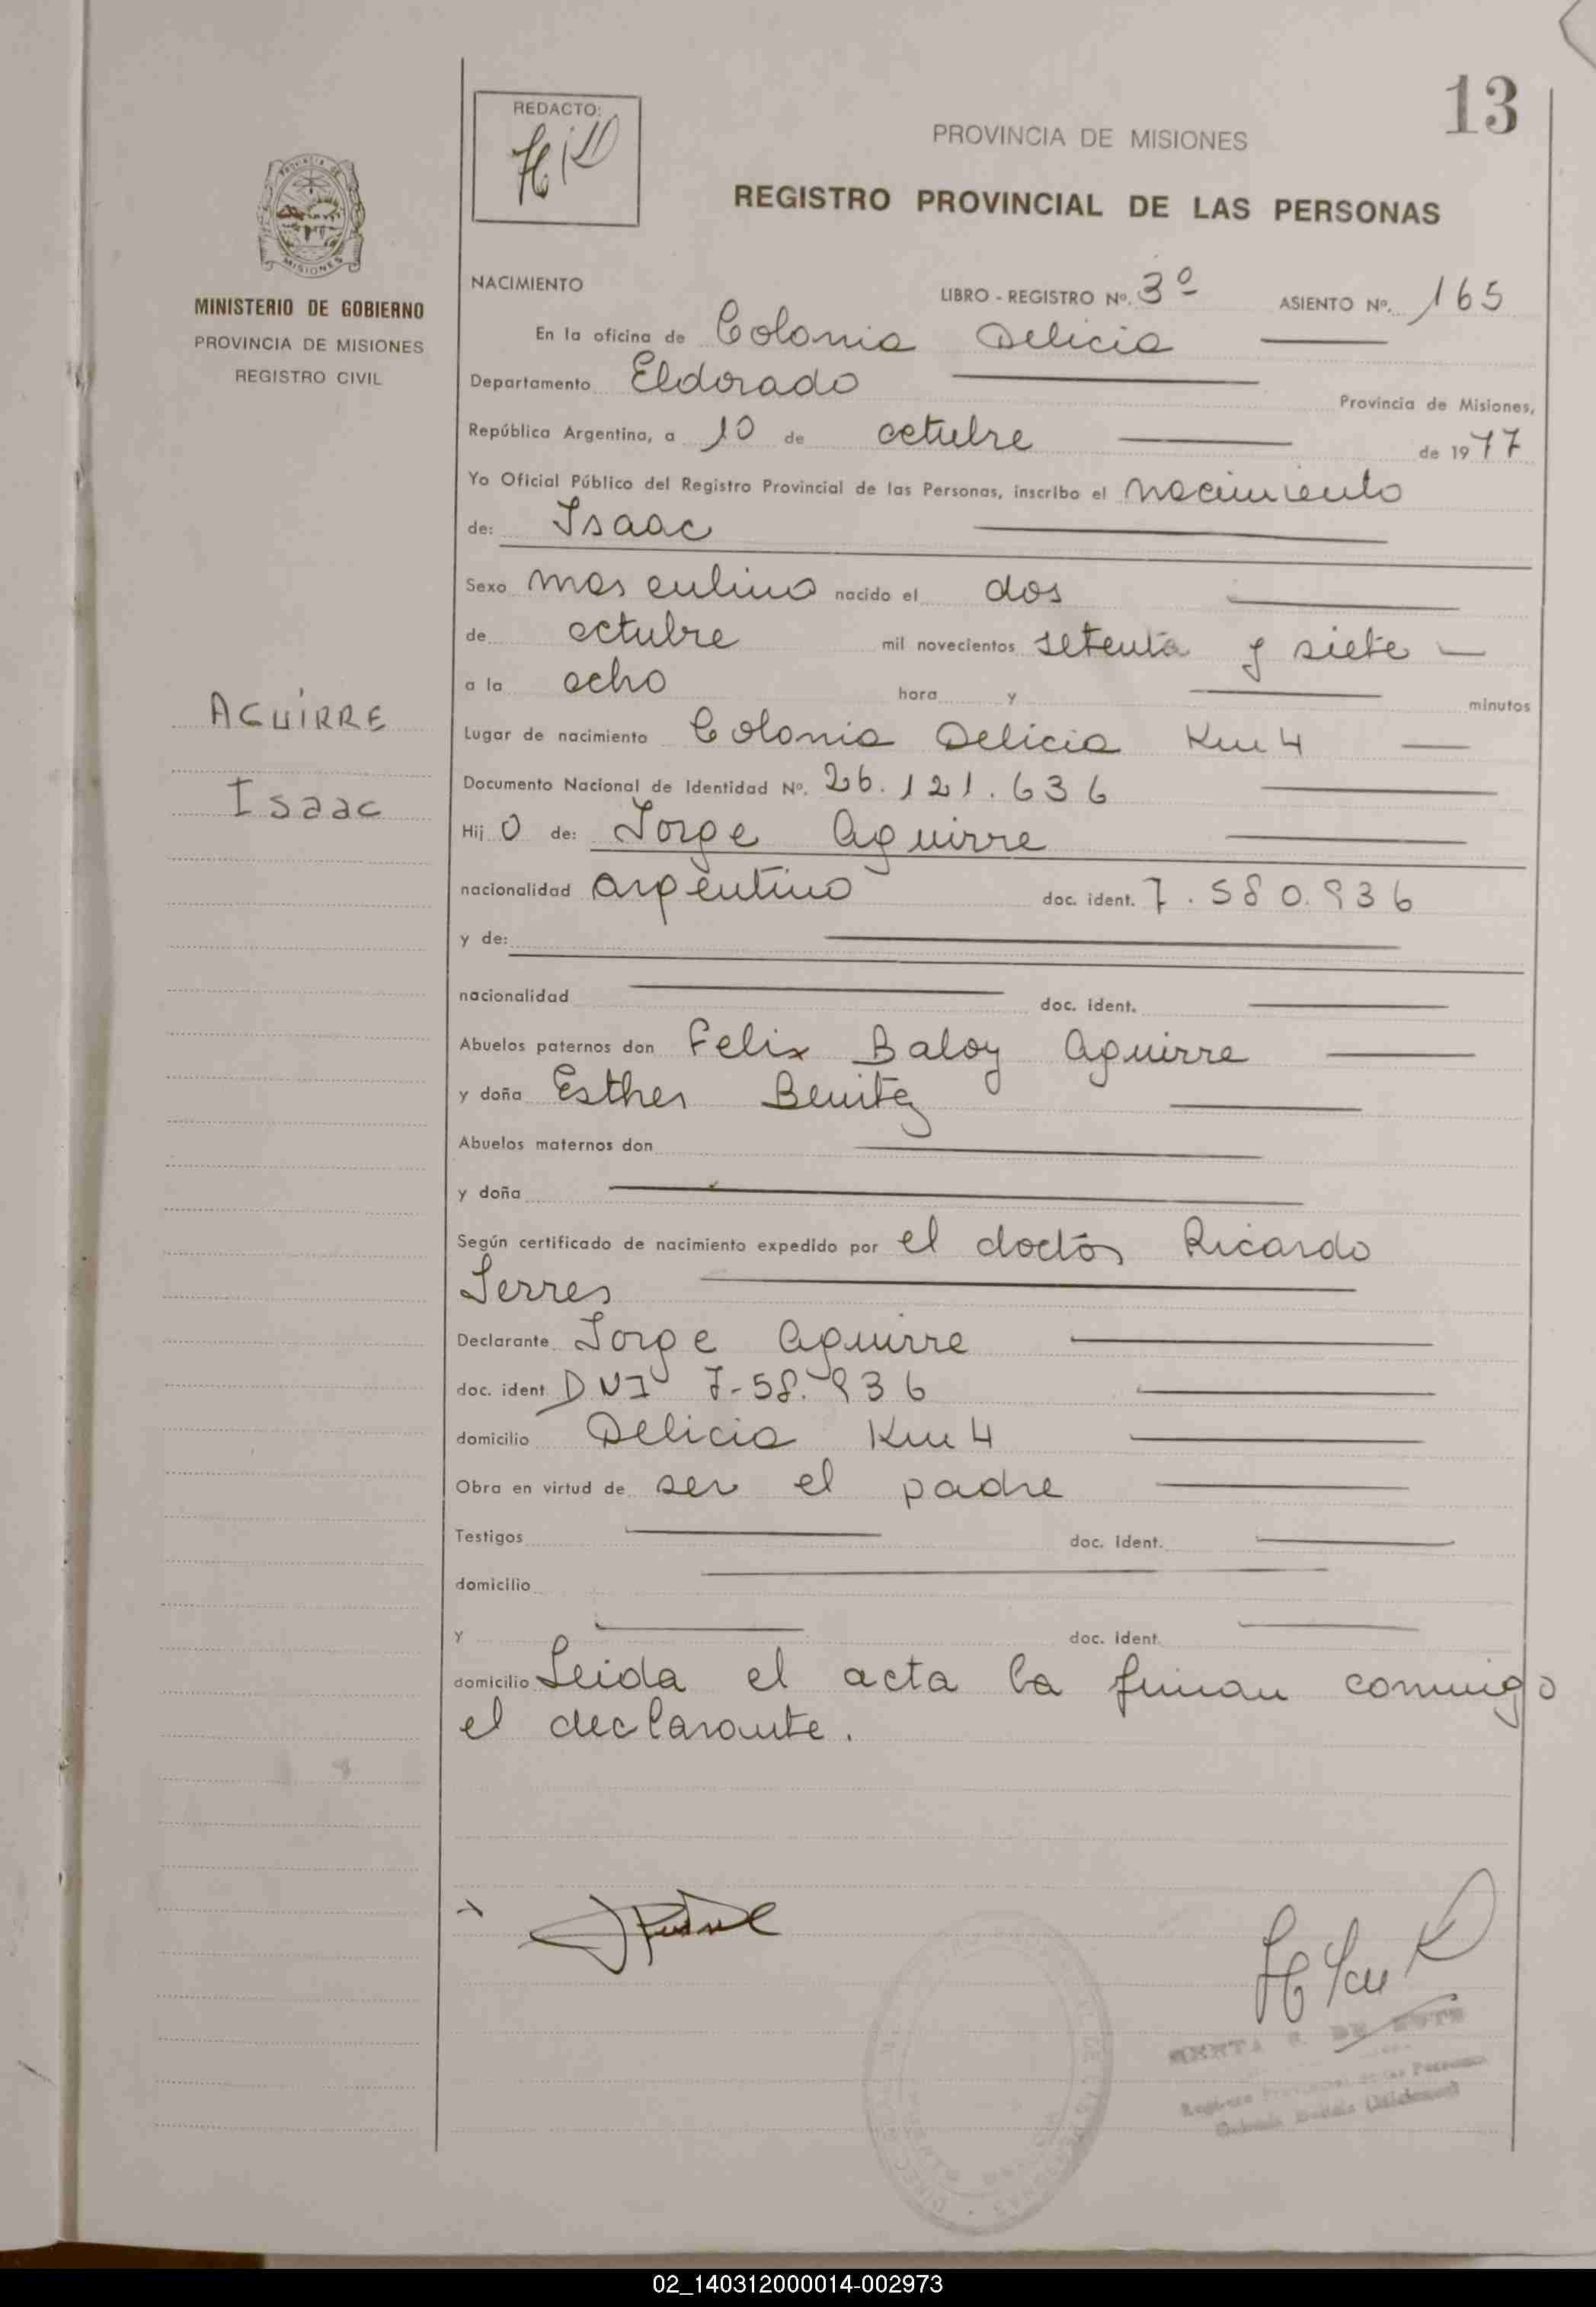 13
REDACTO:
PROVINCIA DE MISIONES
REGISTRO PROVINCIAL DE LAS PERSONAS
MISIONES
MINISTERIO DE GOBIERNO
PROVINCIA DE MISIONES
REGISTRO CIVIL
AGUIRRE
Isaac
NACIMIENTO LIBRO - REGISTRO Nº. 3º ASIENTO Nº. 165
En la oficina de Colonia Delicia
Departamento Eldorado Provincia de Misiones,
República Argentina, a 10 de octubre de 1977
Yo Oficial Público del Registro Provincial de las Personas, inscribo el nacimiento
de: Isaac
Sexo masculino nacido el dos
de octubre mil novecientos setenta y siete
a la ocho hora y minutos
Lugar de nacimiento Colonia Delicia Km 4
Documento Nacional de Identidad Nº. 26.121.636
Hij o de: Jorge Aguirre
nacionalidad argentino doc. ident. 7.580.936
y de:
nacionalidad doc. ident.
Abuelos paternos don Felix Baloy Aguirre
y doña Esther Benitez
Abuelos maternos don
y doña
Según certificado de nacimiento expedido por el doctor Ricardo
Serres
Declarante Jorge Aguirre
doc. ident. DNI 7-58.936
domicilio Delicia Km 4
Obra en virtud de ser el padre
Testigos doc. ident.
domicilio
y doc. ident.
domicilio Leida el acta la firman conmigo
el declarante.
DE
Registro Provincial de las Personas
(Misiones)
02_140312000014-002973